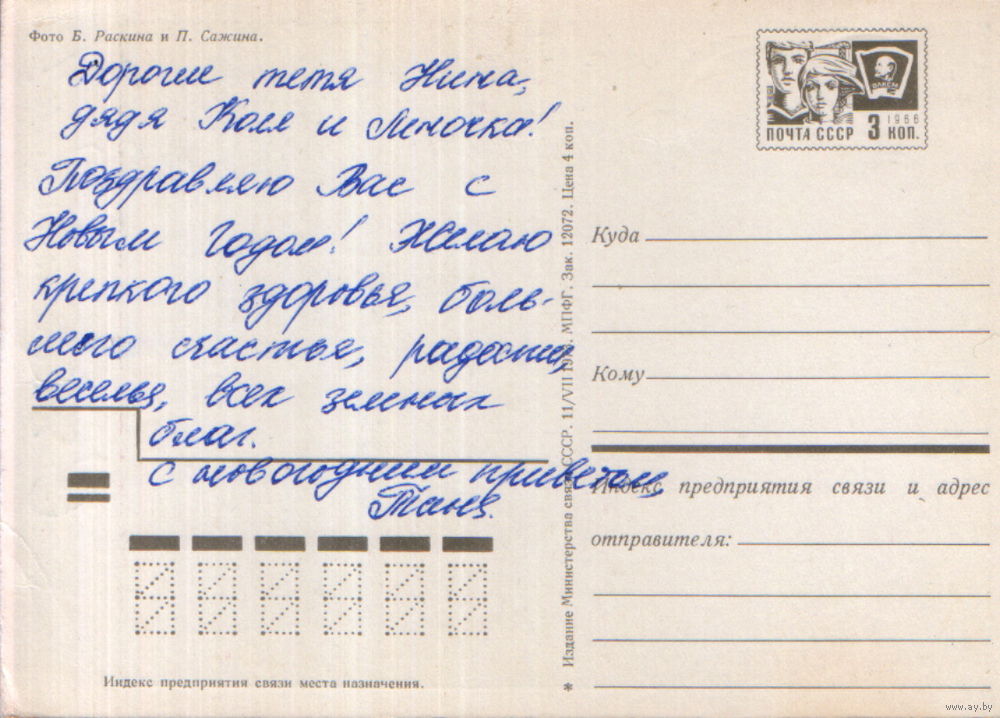 Фото Б. Раскина и П. Сажина.
Дорогие тетя Нина,
дядя Коля и Леночка!
Поздравляю Вас с
Новым годом! Желаю
крепкого здоровья, боль-
шого счастья, радости,
веселья, всех земных
благ.
С новогодним приветом,
Таня.
Индекс предприятия связи места назначения.
* Издание Министерства связи СССР. 11/VII МПФГ. Зак. 12072. Цена 4 коп.
ВЛКСМ
1966
ПОЧТА СССР 3 КОП.
Куда
Кому
Индекс предприятия связи и адрес
отправителя:
www.ay.by